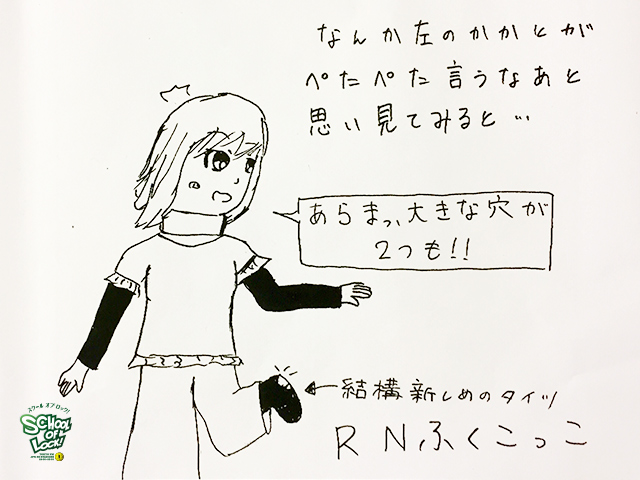 なんか左のかかとが
ぺたぺた言うなあと
思い見てみると…
あらまっ、大きな穴が
2つも!!
←結構新しめのタイツ
RNふくこっこ
スクール オブ ロック!
SCHOOL
OF
LOCK!